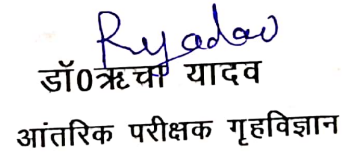 Ryadav
डॉ0ऋचा यादव
आंतरिक परीक्षक गृहविज्ञान